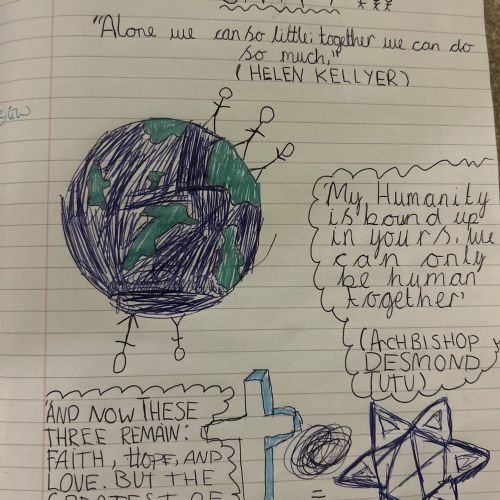 "Alone we can so little; together we can do
so much,"
(HELEN KELLYER)
'My Humanity
is bound up
in yours, we
can only
be human
together'
(ACHBISHOP
DESMOND
TUTU)
'AND NOW THESE
THREE REMAIN:
FAITH, HOPE, AND
LOVE. BUT THE
GREATEST OF